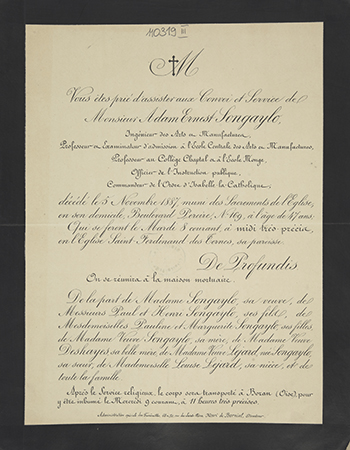 110319 III
M
Vous êtes prié d'assister aux Convoi et Service de
Monsieur Adam Ernest Songaylo,
Ingénieur des Arts et Manufactures,
Professeur et Examinateur d'admission à l'Ecole Centrale des Arts et Manufactures,
Professeur au Collège Chaptal et à l'Ecole Monge,
Officier de l'Instruction publique,
Commandeur de l'Ordre d'Isabelle la Catholique,
décédé le 5 Novembre 1887, muni des Sacrements de l'Eglise,
en son domicile, Boulevard Pereire, N° 169, à l'âge de 47 ans,
Qui se feront le Mardi 8 courant, à midi très précis,
en l'Eglise Saint-Ferdinand des Ternes, sa paroisse.
De Profundis
On se réunira à la maison mortuaire.
De la part de Madame Songaylo, sa veuve, de
Messieurs Paul et Henri Songaylo, ses fils, de
Mesdemoiselles Pauline et Marguerite Songaylo, ses filles,
de Madame Veuve Songaylo, sa mère, de Madame Veuve
Deshayes, sa belle mère, de Madame Veuve Lejard, née Songaylo,
sa sœur, de Mademoiselle Louise Lejard, sa nièce, et de
toute la famille.
Après le Service religieux, le corps sera transporté à Boran (Oise), pour
y être inhumé le Mercredi 9 courant, à 11 heures très précises.